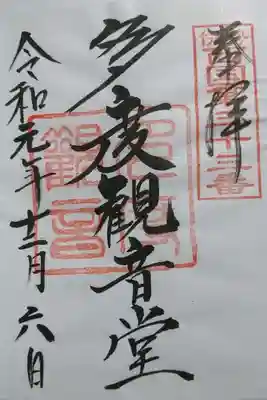 奉拝
多度観音堂
令和元年十二月六日